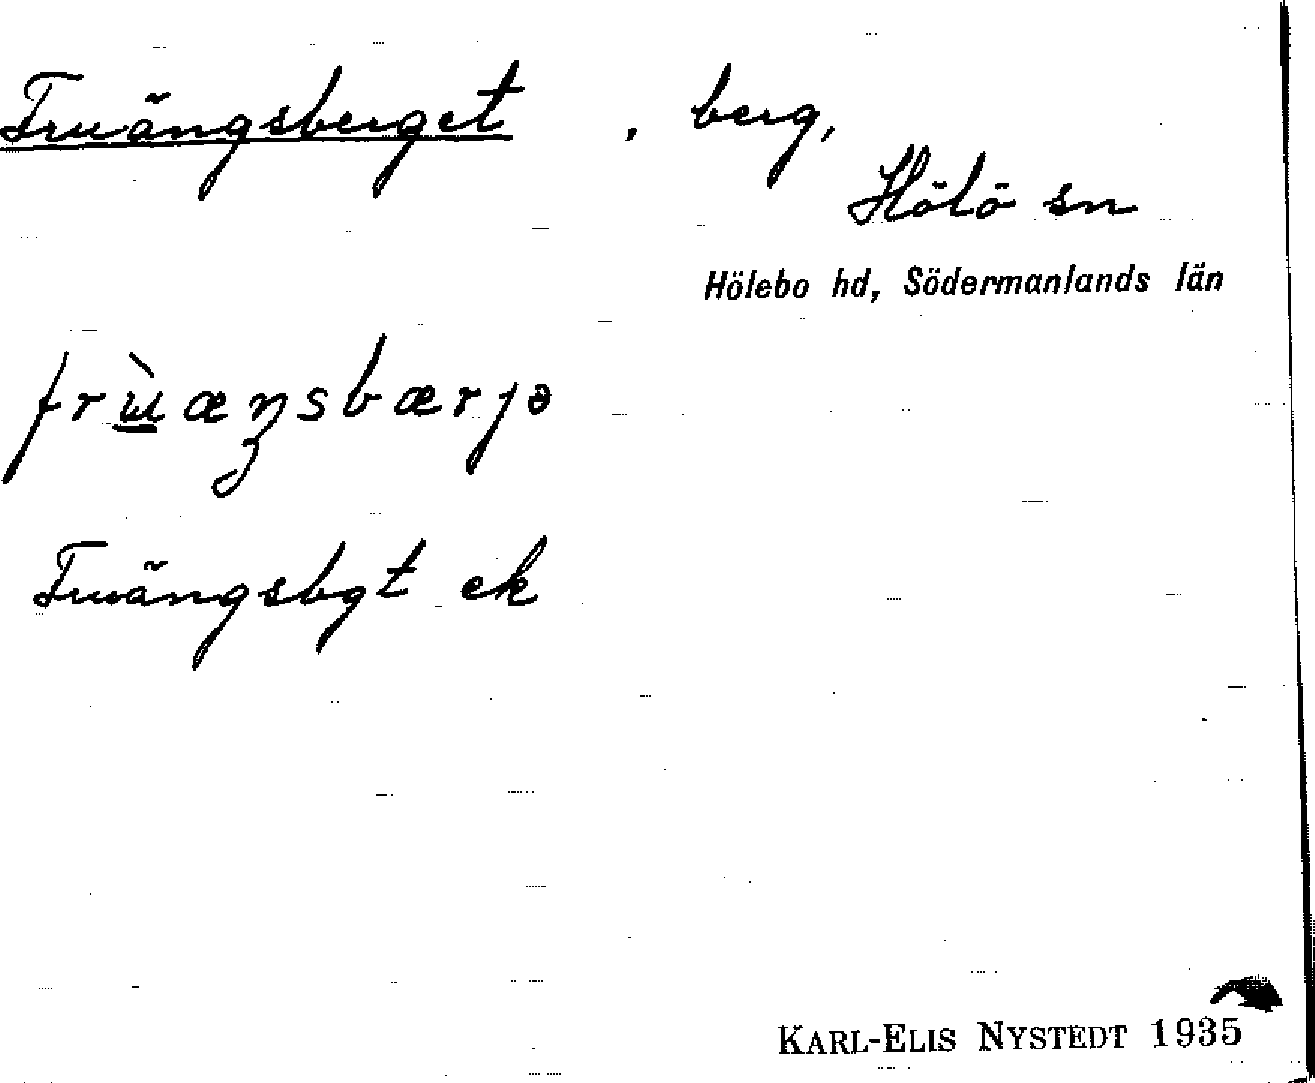 Fruängsberget , berg,
Hölö sn
Hölebo hd, Södermanlands län
frɯ̀æŋsbærjə
Fruängsbgt ek
KARL-ELIS NYSTEDT 1935